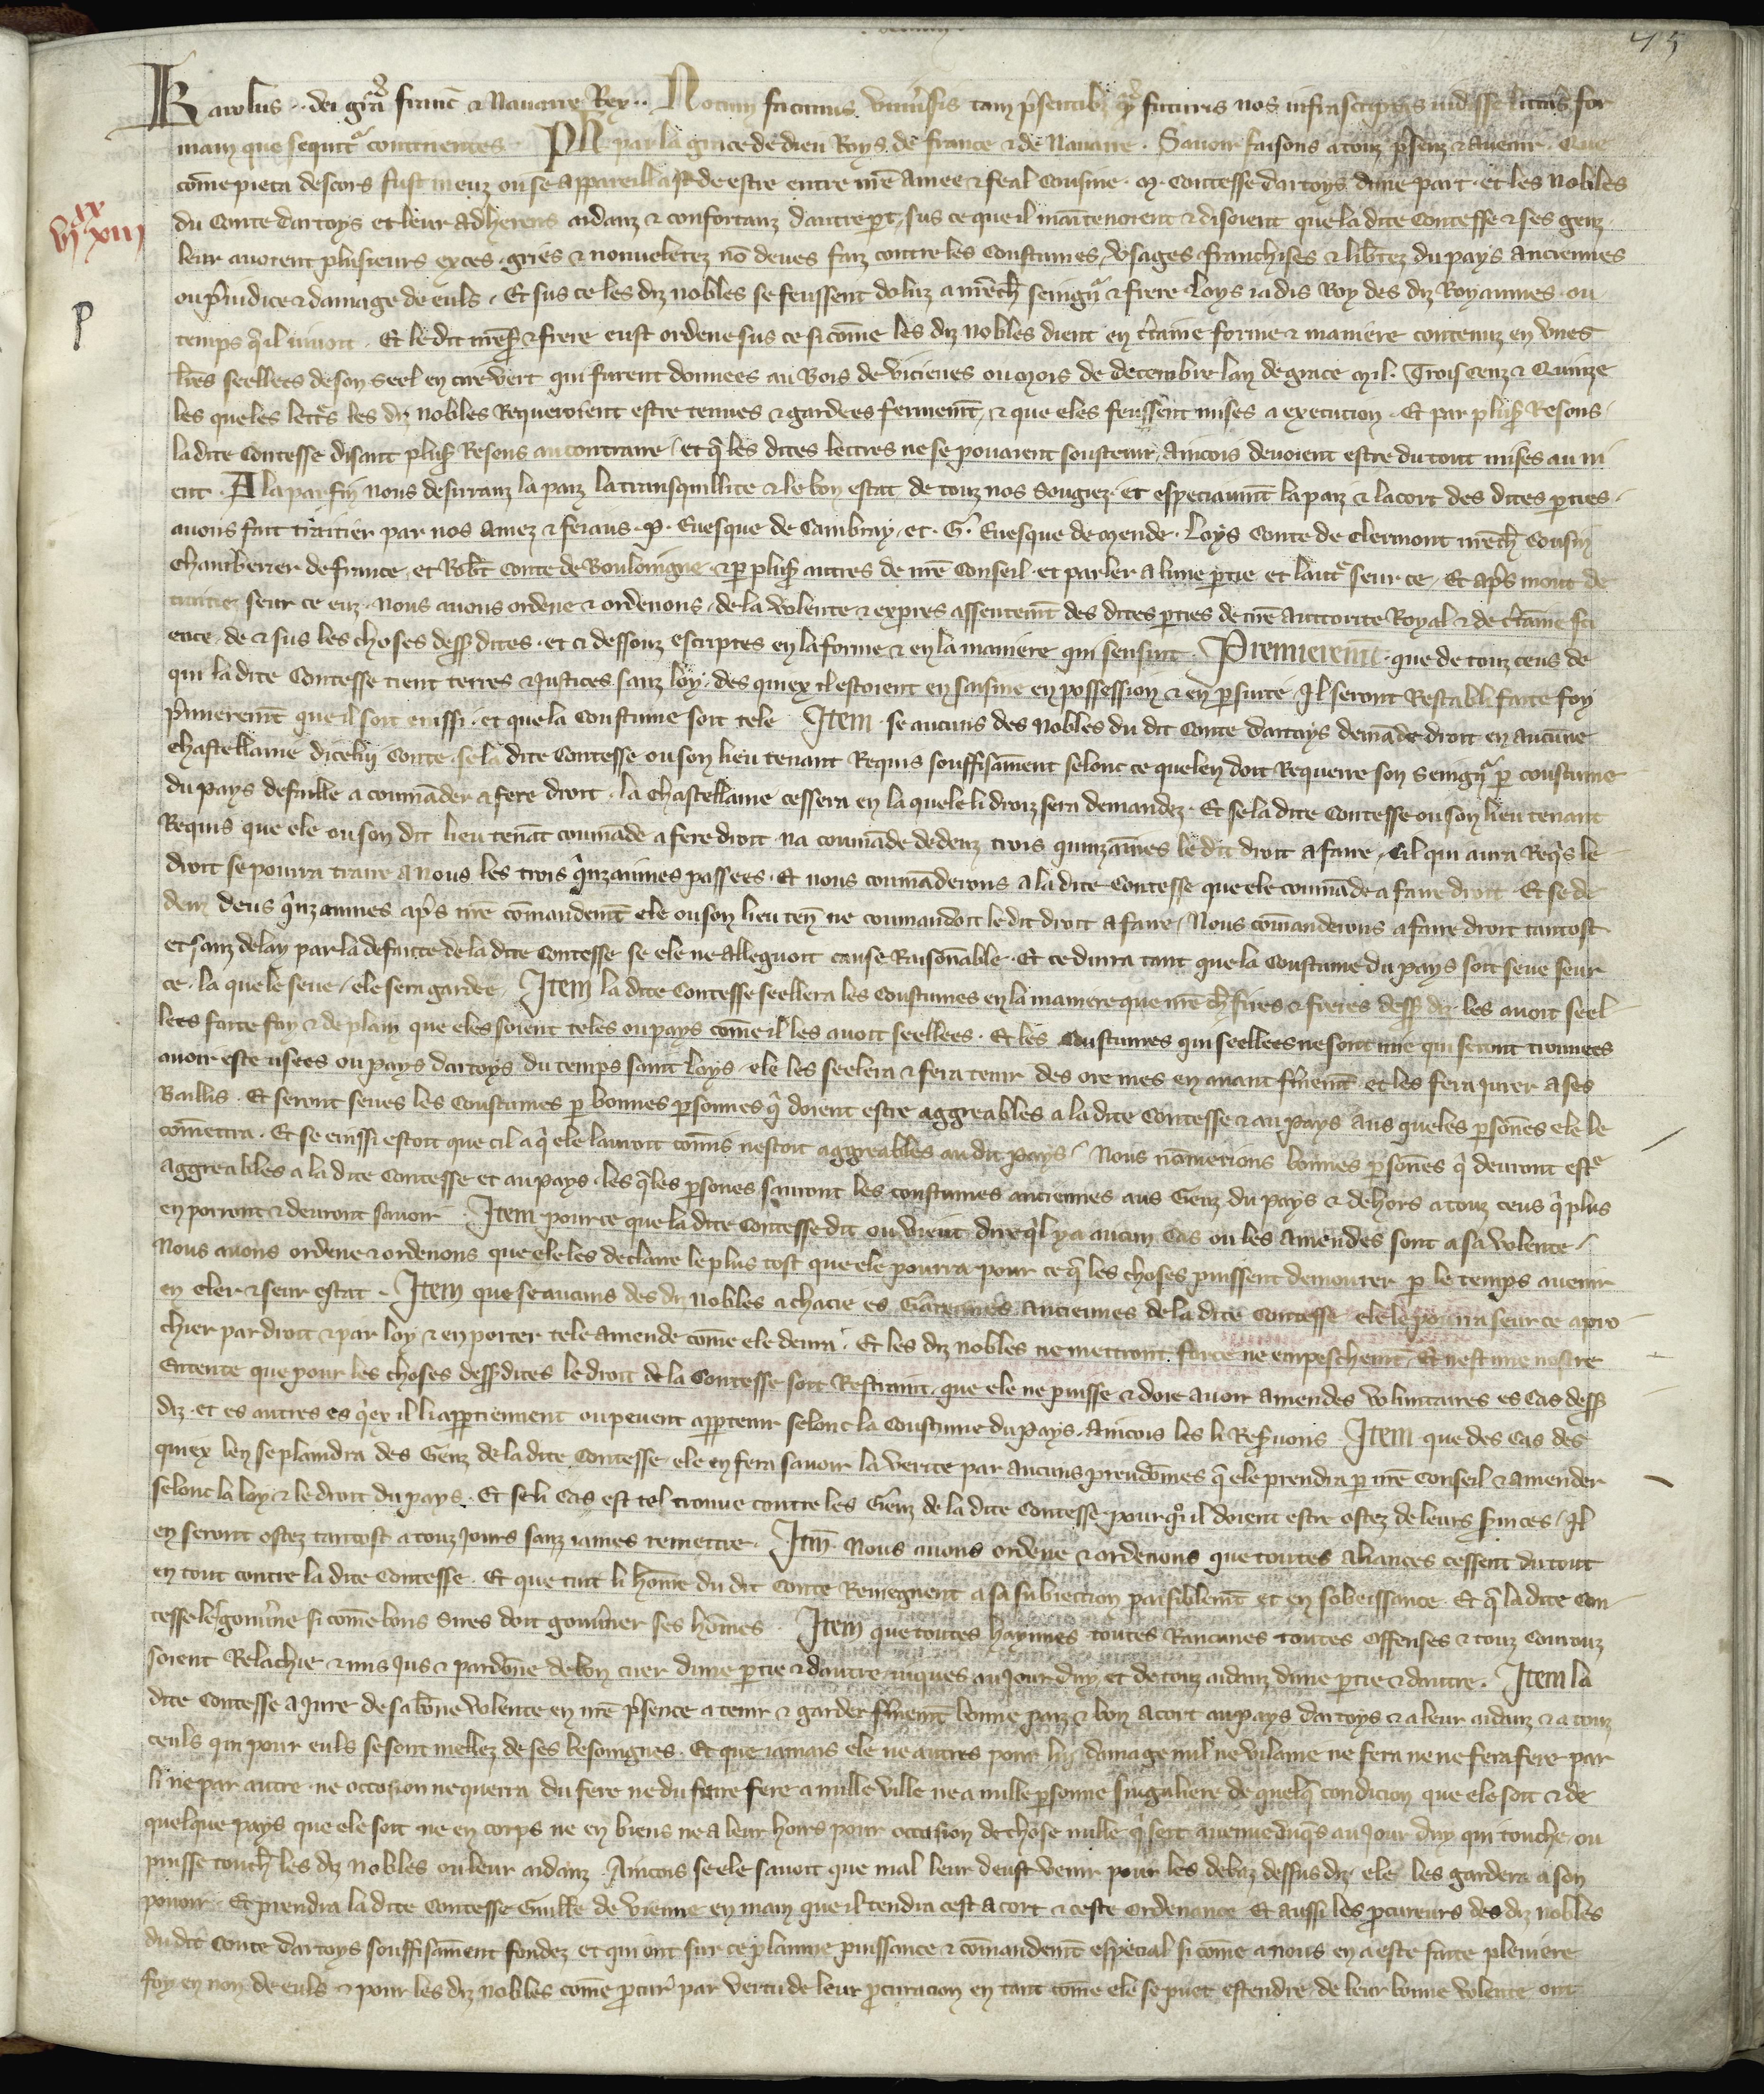 45
Karolus .. dei gra franc & Navarre Rex .. Notum facimus universis tam psentib; qz futuris nos infrascriptas vidisse litteras for
mam que sequitr continentes . Ph par la grace de dieu Roys de france & de Navarre . Savoir faisons a touz psenz & avenir . Que
come pieca descors fust meuz ou se appareillast de estre entre nre amee & feal Cousine . M . Contesse dartoys dune part . et les Nobles
du Conte dartoys et leur adherens aidanz & confortanz dautre pt, sus ce que il maintenoient & disoient que la dite Contesse & ses genz
leur avoient plusieurs exces . griés & nouveletez nō deues faiz contre les Coustumes, Usages franchises & libtez du pays anciennes
VIIxx XIII
ou piudice & damage de euls . Et sus ce les diz nobles se feussent doluz a nre ch seingnr & frere Loys iadis Roy des diz Royaumes . ou
P
temps qil vivoit . Et le dit nre sr & frere eust ordene sus ce si cōme les diz nobles dient en ctaine forme & maniere contenuz en unes
lres seellees de son seel en cire vert qui furent donnees au Bois de vicienes ou mois de decembre lan de grace Mil . Trois cenz & Quinze
les queles lettrs les diz nobles Requeroient estre tenues & gardees fermemt, & que eles feussent mises a execution . Et par plus Resons
la dite Contesse disant plus Resons au contraire / et q les dites lettres ne se povaient soustenir, Aincois devoient estre du tout mises au ni
ent . A la par fin nous desirranz la paiz la transquillite & le bon estat de touz nos Sougiez . et especiaumt la paiz & lacort des dites pties .
avons fait traitier par nos amez & feaus . P . Evesque de Cambray, et . G . Evesque de Mende . Loys Conte de Clermont nre ch Cousin
Chamberier de france, et Robt Conte de Bouloingne, & p plus autres de nre Conseil . et parler a lune ptie et lautr seur ce, Et aps mout de
traitiez seur ce euz . Nous avons ordene & ordenons, de la volente & expres assentemt des dites pties de nre auctorite Royal & de ctaine sci
ence, de & sus les choses dess dites . et ci dessouz escriptes en la forme & en la maniere qui sensuit . Premieremt . que de touz ceus de
qui la dite Contesse tient terres & Justices sanz loy . des quiex il estoient en saisine en possession & en psuite Il seront Restabli faite foy
pmieremt que il soit einssi . et que la Coustume soit tele Item . se aucuns des Nobles du dit Conte dartoys demāde droit en aucune
chastellanie dicelui Conte . se la dite Contesse ou son lieu tenant Requis souffisāment selonc ce que len doit Requerre son Seingnr p coustume
du pays defaille a coumāder a fere droit . la Chastellanie cessera en la quele li droiz sera demandez . Et se la dite Contesse ou son lieu tenant
Requis que ele ou son dit lieu tenāt coumāde a fere droit na coumāde dedenz trois quinzaīnes le dit droit a faire, Cil qui aura Reqis le
droit se pourra traire a Nous les trois qinzainnes passees . Et nous coumāderons a la dite Contesse que ele coumāde a faire droit . Et se de
denz deus qinzainnes aps nre cōmandemt ele ou son lieu ten ne coumandoit le dit droit a faire, Nous cōmanderons a faire droit tantost
et sanz delay par la defaute de la dite Contesse se ele ne allegvoit cause Raisonable . Et ce durra tant que la Coustume du pays soit seue seur
ce . la quele seue, ele sera gardee . Item la dite Contesse seellera les Coustumes en la maniere que nre ch sires & freres dess diz les avoit seel
lees faite foy & de plain que eles soient teles ou pays cōme il les avoit seellees . Et les coustumes qui seellees ne sont mie qui seront trouvees
avoir este usees ou pays dartoys du temps saint Loys, ele les seelera & fera tenir des ore mes en avant fmemt et les fera jurer a ses
Baillis . Et seront seues les Coustumes p bonnes psonnes q doient estre aggreables a la dite Contesse & au pays aus queles psonnes ele le
cōmettra . Et se einssi estoit que cil a q ele lauroit cōmis nestoit aggreables au dit pays / Nous nōmerions bonnes psones q devront estre
aggreables a la dite Contesse et au pays . les qles psones sauront les coustumes anciennes aus Genz du pays & dehors a touz ceus q plus
en porront & devront savoir . Item pour ce que la dite Contesse dit ou vieut dire qil y a aucun Cas ou les amendes sont a sa volente /
Nous avons ordene & ordenons que ele les declaire le plus tost que ele pourra pour ce q les choses puissent demourer p le temps avenir
en cler & seur estat . Item que se aucuns des diz nobles a chacie es Garennes anciennes de la dite Contesse ele le pourra seur ce apro
chier par droit & par loy & en porter tele amende cōme ele devra . Et les diz nobles ne mettront force ne empeschemt . Et nest mie nostre
Entente que pour les choses dess dites le droit de la Contesse soit Restraint, que ele ne puisse & doie avoir amendes voluntaires es cas dess
diz . et es autres es qiex il li apptiennent ou pevent apptenir selonc la Coustume du pays. Aincois les li Reservons . Item que des Cas des
quiex len se plaindra des Genz de la dite Contesse ele en fera savoir la verite par aucuns preudōmes q ele prendra p nre Conseil & amender
selonc la loy & le droit du pays . Et se li Cas est tel trouve contre les Genz de la dite Contesse, pour qoi il doient estre ostez de leurs svices / Il
en seront ostez tantost a touz jours sanz james remettre . Itm . Nous avons ordene & ordenons que toutes aliances cessent du tout
en tout contre la dite Contesse . Et que tuit li home du dit Conte Reviegnent a sa subiection paisiblemt et en sobeissance . Et q la dite Con
tesse les govne si cōme bons Sires doit govner ses hōmes . Item que toutes haynnes toutes Rancunes toutes Offenses & touz Courouz
soient Relachie & mis Jus & pardone de bon cuer dune ptie & dautre iusques au jour duy et de touz aidanz dune ptie & dautre . Item la
dite Contesse a Jure de sa bone volente en nre psence a tenir & garder fmemt bonne paiz & bon acort au pays dartoys & a leur aidanz & a touz
ceuls qui pour euls se sont mellez de ses besoingnes . Et que iamais ele ne autres pour luy damage nul ne vilanie ne fera ne ne fera fere par
li ne par autre . ne occoison ne querra du fere ne du faire fere a nulle ville ne a nulle psonne singuliere de quelq condicion que ele soit & de
quelque pays que ele soit ne en corps ne en biens ne a leur hoirs pour occasion de chose nulle q soit avenue duqs au Jour duy qui touche, ou
puisse touch les diz nobles ou leur aidanz . Aincois se ele savoit que mal leur deust venir pour les debaz dessus diz ele les gardera a son
povoir . Et prendra la dite Contesse Guille de Vienne en main que il tendra cest acort & ceste Ordenance Et aussi les pcureurs des diz nobles
du dit Conte dartoys souffisāment fondez et qui ont sur ce plainne puissance & cōmandemt especial si cōme a nous en a este faite pleniere
foy en non de euls & pour les diz nobles cōme pcur par vertu de leur pcuracion en tant cōme ele se puet estendre, de leur bonne volente ont